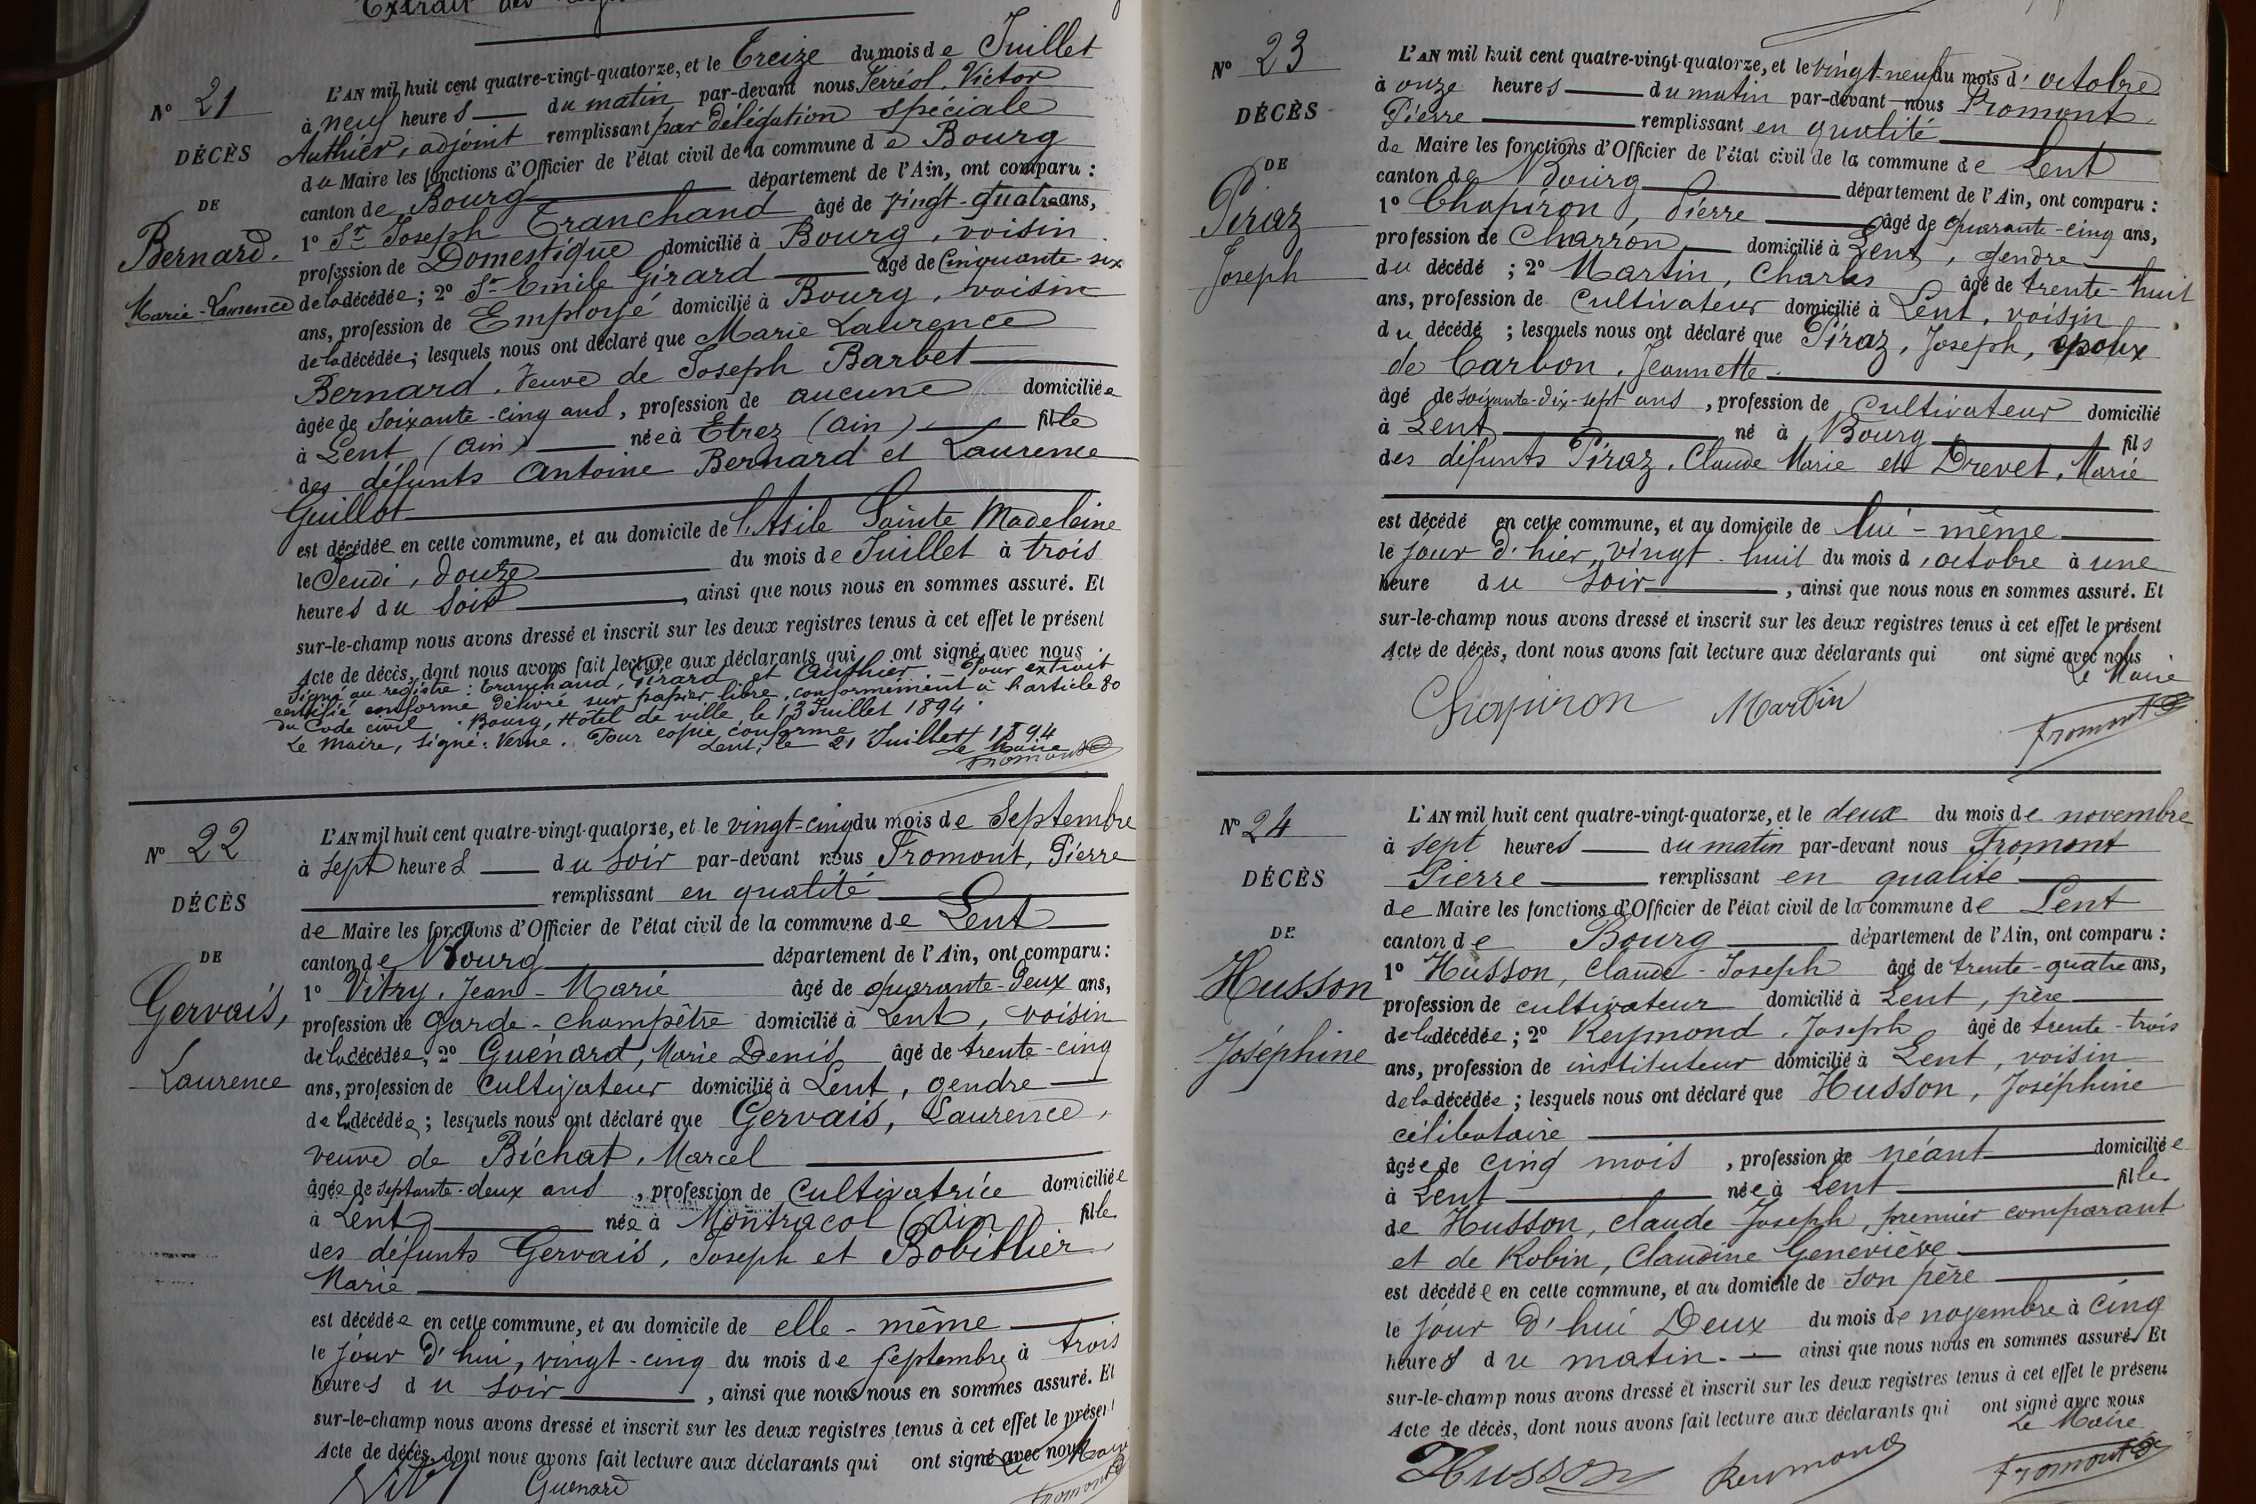 Extrait des
N° 21
DÉCÈS
DE
Bernard.
Marie-Laurence
L'AN mil huit cent quatre-vingt-quatorze, et le Treize du mois de Juillet
à neuf heures du matin par-devant nous Ferréol, Victor
Authier, adjoint remplissant par délégation spéciale
du Maire les fonctions d'Officier de l'état civil de la commune de Bourg
canton de Bourg département de l'Ain, ont comparu :
1° Sr Joseph Tranchand âgé de vingt-quatre ans,
profession de Domestique domicilié à Bourg, voisin
de la décédée ; 2° Sr Emile Girard âgé de Cinquante-six
ans, profession de Employé domicilié à Bourg, voisin
de la décédée ; lesquels nous ont déclaré que Marie Laurence
Bernard, Veuve de Joseph Barbet
âgée de soixante-cinq ans, profession de aucune domiciliée
à Lent (Ain) née à Etrez (Ain) fille
des défunts Antoine Bernard et Laurence
Guillot
est décédée en cette commune, et au domicile de l'Asile Sainte Madeleine
le Jeudi, douze du mois de Juillet à trois
heures du soir, ainsi que nous nous en sommes assuré. Et
sur-le-champ nous avons dressé et inscrit sur les deux registres tenus à cet effet le présent
Acte de décès, dont nous avons fait lecture aux déclarants qui ont signé avec nous.
Signé au registre : Tranchand, Girard et Authier. – Pour extrait
certifié conforme délivré sur papier libre, conformément à l'article 80
du Code civil. Bourg, Hôtel de ville, le 13 Juillet 1894.
Le Maire, signé : Verne. Pour copie conforme
Lent, le 21 Juillet 1894
Le Maire
Fromont
N° 22
DÉCÈS
DE
Gervais,
Laurence
L'AN mil huit cent quatre-vingt-quatorze, et le vingt-cinq du mois de Septembre
à sept heures du soir par-devant nous Fromont, Pierre
remplissant en qualité
de Maire les fonctions d'Officier de l'état civil de la commune de Lent
canton de Bourg département de l'Ain, ont comparu :
1° Vitry, Jean-Marie âgé de quarante-deux ans,
profession de garde-champêtre domicilié à Lent, voisin
de la décédée, 2° Guénard, Marie Denis âgé de trente-cinq
ans, profession de cultivateur domicilié à Lent, gendre
de la décédée ; lesquels nous ont déclaré que Gervais, Laurence,
veuve de Bichat, Marcel
âgée de septante-deux ans, profession de cultivatrice domiciliée
à Lent née à Montracol (Ain) fille
des défunts Gervais, Joseph et Bobillier
Marie
est décédée en cette commune, et au domicile de elle-même
le jour d'hui, vingt-cinq du mois de septembre à trois
heures du soir, ainsi que nous nous en sommes assuré. Et
sur-le-champ nous avons dressé et inscrit sur les deux registres tenus à cet effet le présent
Acte de décès, dont nous avons fait lecture aux déclarants qui ont signé avec nous
Le Maire
Guenard
Fromont
N° 23
DÉCÈS
DE
Piraz
Joseph
L'AN mil huit cent quatre-vingt-quatorze, et le vingt-neuf du mois d'octobre
à onze heures du matin par-devant nous Fromont,
Pierre remplissant en qualité
de Maire les fonctions d'Officier de l'état civil de la commune de Lent
canton de Bourg département de l'Ain, ont comparu :
1° Chapiron, Pierre âgé de quarante-cinq ans,
profession de Charron domicilié à Lent, gendre
du décédé ; 2° Martin, Charles âgé de trente-huit
ans, profession de cultivateur domicilié à Lent, voisin
du décédé ; lesquels nous ont déclaré que Piraz, Joseph, époux
de Carbon, Jeannette
âgé de soixante-dix-sept ans, profession de cultivateur domicilié
à Lent né à Bourg fils
des défunts Piraz, Claude Marie et Drevet, Marie
est décédé en cette commune, et au domicile de lui-même
le jour d'hier, vingt-huit du mois d'octobre à une
heure du soir, ainsi que nous nous en sommes assuré. Et
sur-le-champ nous avons dressé et inscrit sur les deux registres tenus à cet effet le présent
Acte de décès, dont nous avons fait lecture aux déclarants qui ont signé avec nous
Le Maire
Chapiron Martin Fromont
N° 24
DÉCÈS
DE
Husson
Joséphine
L'AN mil huit cent quatre-vingt-quatorze, et le deux du mois de novembre
à sept heures du matin par-devant nous Fromont
Pierre remplissant en qualité
de Maire les fonctions d'Officier de l'état civil de la commune de Lent
canton de Bourg département de l'Ain, ont comparu :
1° Husson, Claude-Joseph âgé de trente-quatre ans,
profession de cultivateur domicilié à Lent, père
de la décédée ; 2° Reymond, Joseph âgé de trente-trois
ans, profession de instituteur domicilié à Lent, voisin
de la décédée ; lesquels nous ont déclaré que Husson, Joséphine
célibataire
âgée de cinq mois, profession de néant domiciliée
à Lent née à Lent fille
de Husson, Claude Joseph, premier comparant
et de Robin, Claudine Geneviève
est décédée en cette commune, et au domicile de son père
le jour d'hui Deux du mois de novembre à cinq
heures du matin. ainsi que nous nous en sommes assuré. Et
sur-le-champ nous avons dressé et inscrit sur les deux registres tenus à cet effet le présent
Acte de décès, dont nous avons fait lecture aux déclarants qui ont signé avec nous
Le Maire
Husson Reymond Fromont